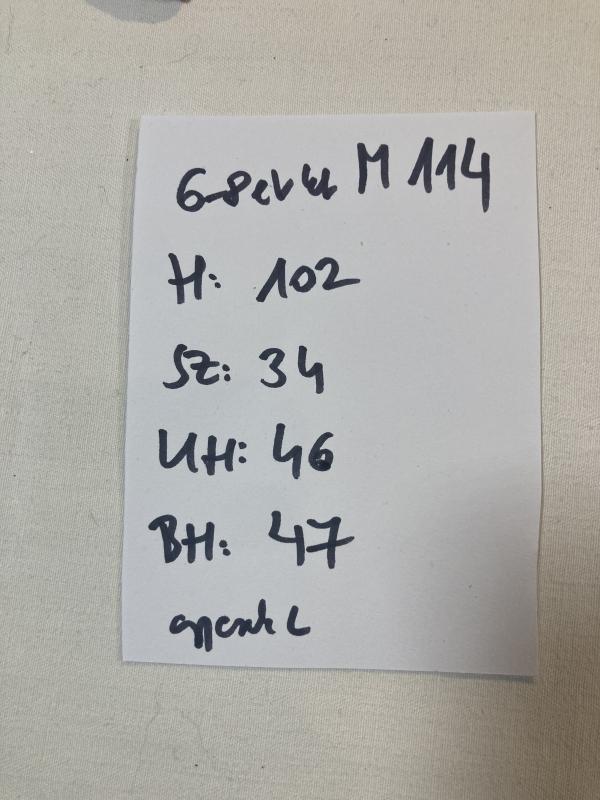 6-8 év M 114
H: 102
SZ: 34
UH: 46
BH: 47